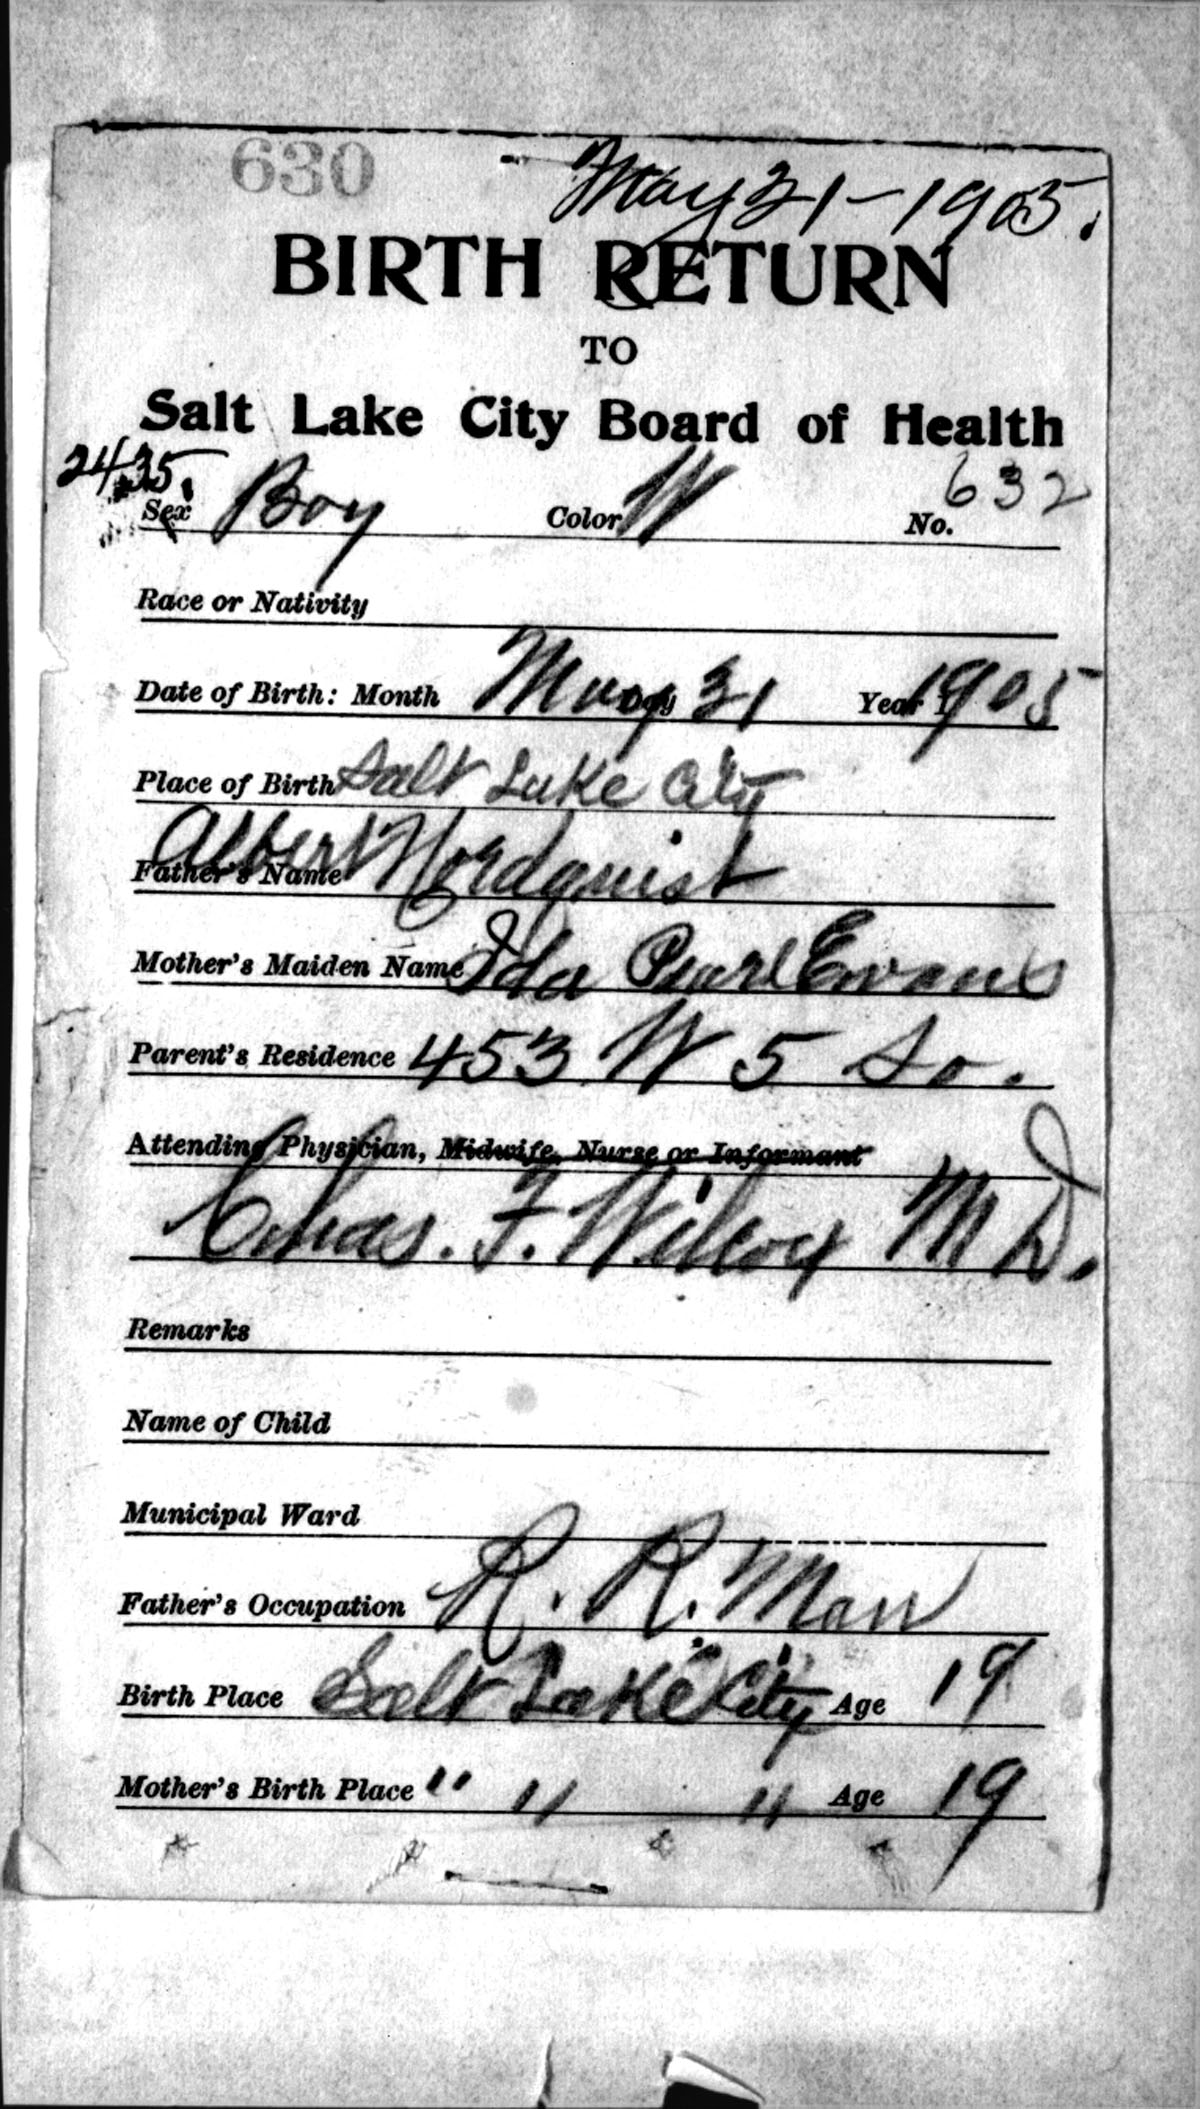 630
May 31-1905.
BIRTH RETURN
TO
Salt Lake City Board of Health
2435.
Sex Boy Color W No. 632
Race or Nativity
Date of Birth: Month May Day 31 Year 1905
Place of Birth Salt Lake City
Father's Name Albert Nordquist
Mother's Maiden Name Ida Pearl Evans
Parent's Residence 453 W 5 So.
Attending Physician, Midwife, Nurse or Informant
Chas. F. Wilcox M D.
Remarks
Name of Child
Municipal Ward
Father's Occupation R. R. Man
Birth Place Salt Lake City Age 19
Mother's Birth Place " " " Age 19